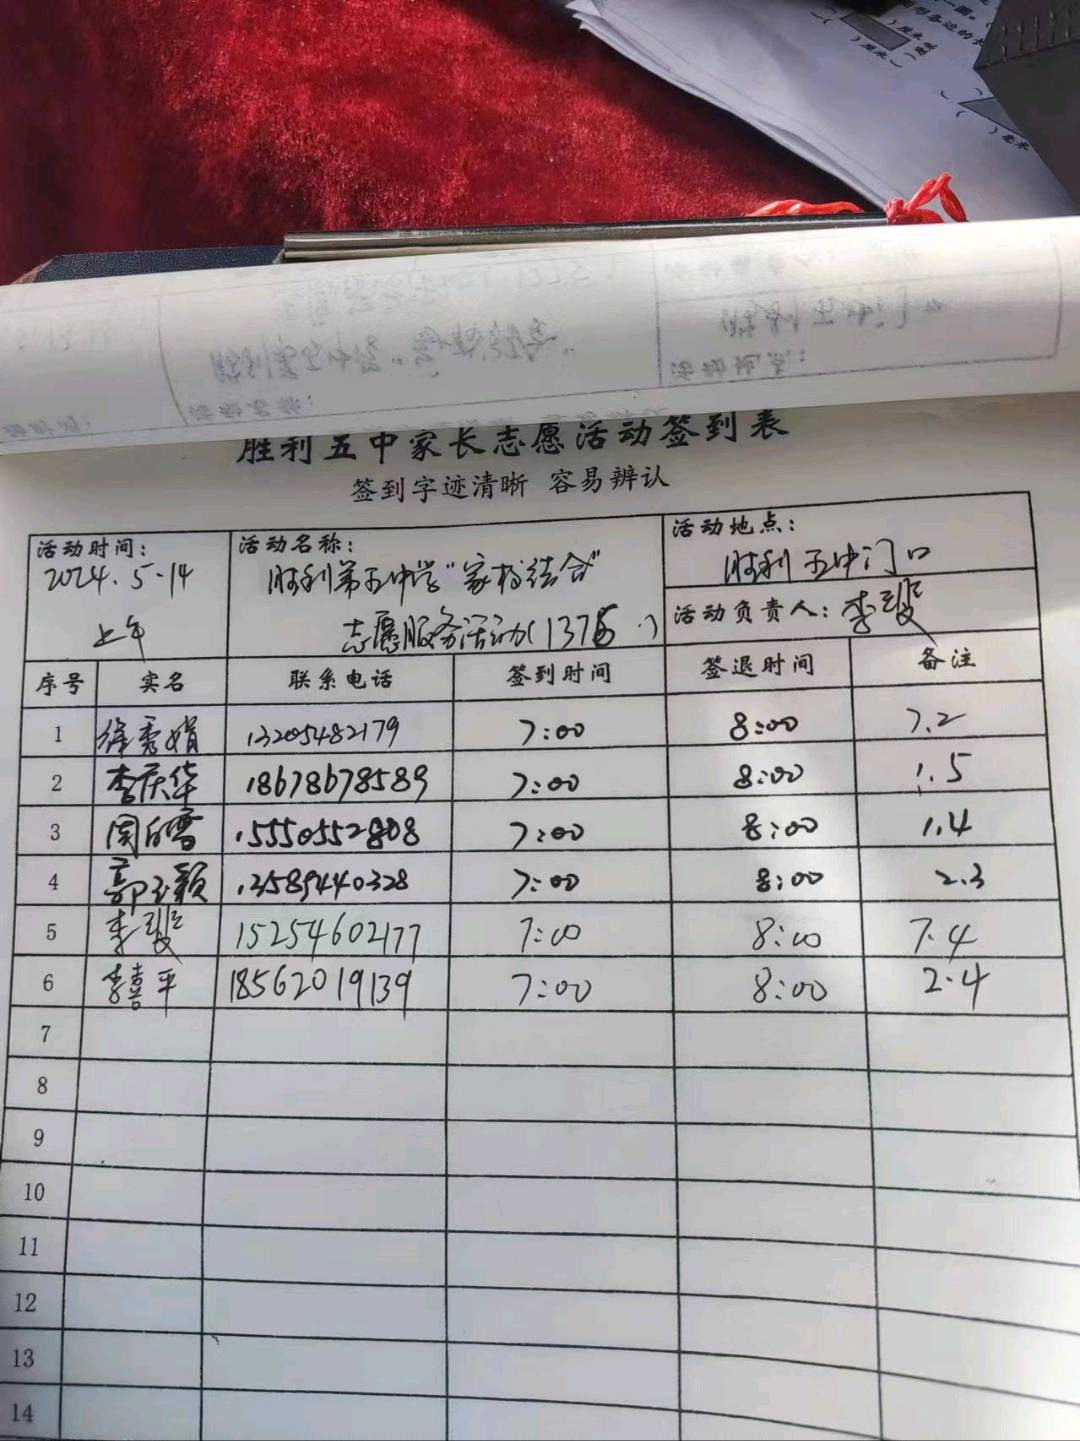 胜利五中家长志愿活动签到表
签到字迹清晰 容易辨认
活动时间：
2024.5.14
上午
活动名称：
胜利第五中学"家校结合"
志愿服务活动(1376)
活动地点：
胜利五中门口
活动负责人：李
序号 实名 联系电话 签到时间 签退时间 备注
1 徐秀娟 13205482179 7:00 8:00 7.2
2 李庆华 18678678589 7:00 8:00 1.5
3 15550552808 7:00 8:00 1.4
4 郭玉颖 13589440328 7:00 8:00 2.3
5 李 15254602177 7:00 8:00 7.4
6 李喜平 18562019139 7:00 8:00 2.4
7
8
9
10
11
12
13
14
厘米
厘米
毫米